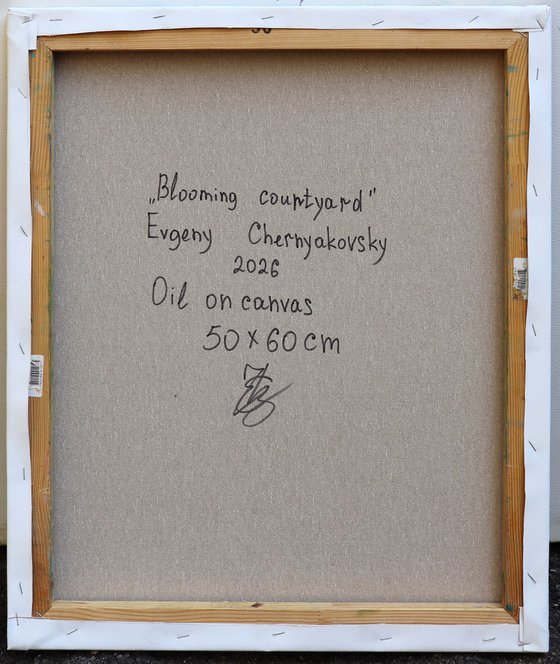 „Blooming courtyard"
Evgeny Chernyakovsky
2026
Oil on canvas
50 x 60 cm